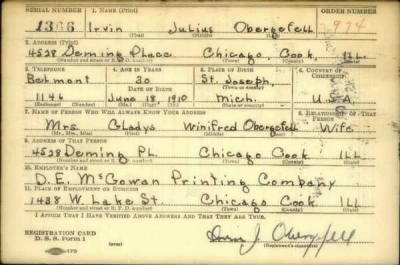 SERIAL NUMBER 1. NAME (Print) ORDER NUMBER
1366 Irvin Julius Obergefell 974
(First) (Middle) (Last)
2. ADDRESS (Print)
4528 Deming Place Chicago, Cook, Ill.
(Number and street or R. F. D. number) (Town) (County) (State)
3. TELEPHONE 4. AGE IN YEARS 5. PLACE OF BIRTH 6. COUNTRY OF CITIZENSHIP
Belmont 30 St. Joseph,
DATE OF BIRTH (Town or county)
1146 June 18 1910 Mich. U.S.A.
(Exchange) (Number) (Mo.) (Day) (Yr.) (State or country)
7. NAME OF PERSON WHO WILL ALWAYS KNOW YOUR ADDRESS 8. RELATIONSHIP OF THAT PERSON
Mrs. Gladys Winifred Obergefell Wife
(Mr., Mrs., Miss) (First) (Middle) (Last)
9. ADDRESS OF THAT PERSON
4528 Deming Pl. Chicago Cook Ill
(Number and street or R. F. D. number) (Town) (County) (State)
10. EMPLOYER'S NAME
D. E. McGowan Printing Company
11. PLACE OF EMPLOYMENT OR BUSINESS
1438 W. Lake St Chicago Cook Ill
(Number and street or R. F. D. number) (Town) (County) (State)
I AFFIRM THAT I HAVE VERIFIED ABOVE ANSWERS AND THAT THEY ARE TRUE.
REGISTRATION CARD
D. S. S. Form 1 Irvin J. Obergefell
(Registrant's signature)